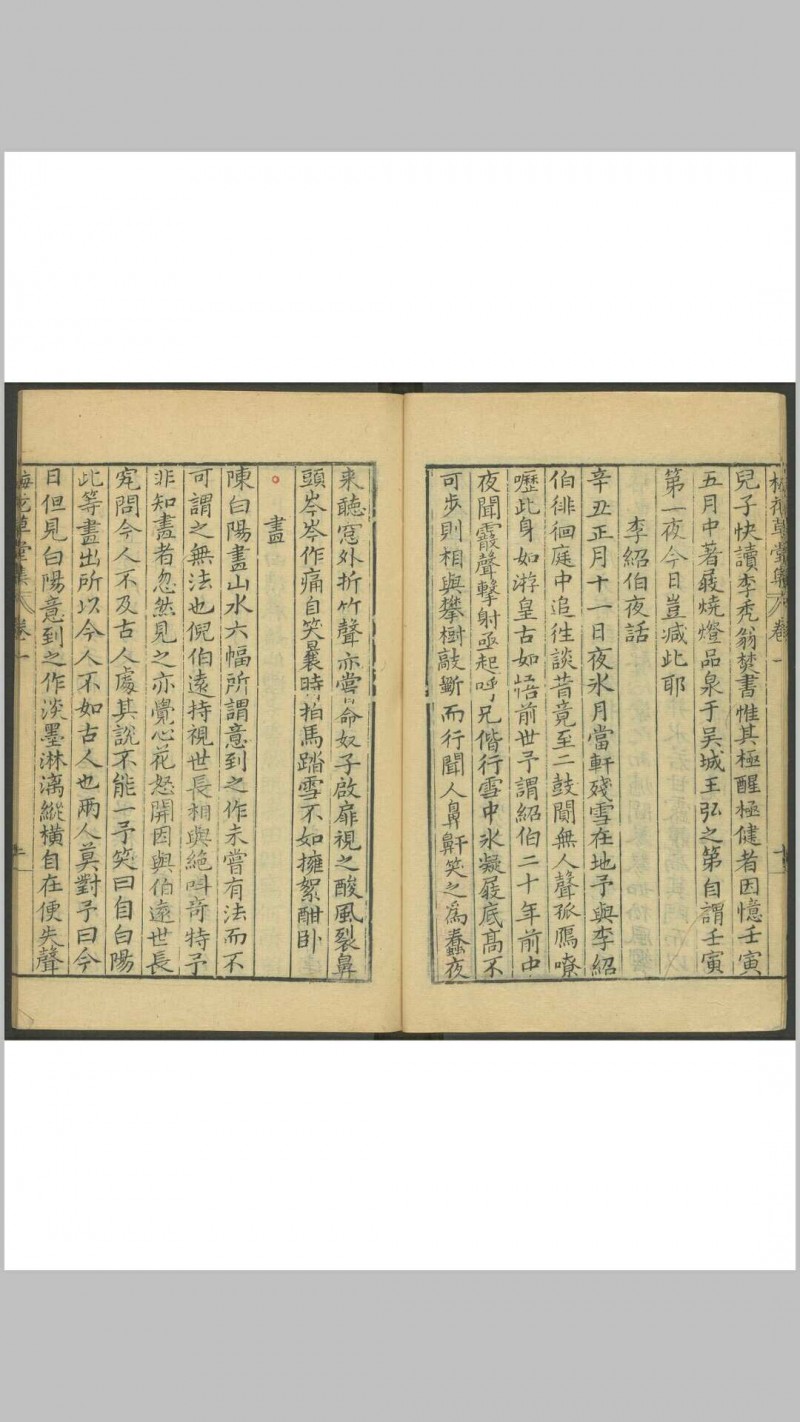 兒子快讀李禿翁焚書惟其極醒極健者因憶壬寅
五月中著屐燒燈品泉于吳城王弘之第自謂壬寅
第一夜今日豈減此耶
李紹伯夜話
辛丑正月十一日夜氷月當軒殘雪在地予與李紹
伯徘徊庭中追徃談昔竟至二鼓闃無人聲孤鴈嘹
嚦此身如游皇古如悟前世予謂紹伯二十年前中
夜聞霰聲擊射亟起呼兄偕行雪中氷凝屐底高不
可步則相與攀樹敲斷而行聞人鼻鼾笑之爲蠢夜
來聽窓外折竹聲亦嘗命奴子啟扉視之酸風裂鼻
頭岑岑作痛自笑曩時拍馬踏雪不如擁絮酣卧
畫
陳白陽畫山水六幅所謂意到之作未嘗有法而不
可謂之無法也倪伯遠持視世長相與絕呌奇特予
非知畫者忽然見之亦覺心花怒開因與伯遠世長
究問今人不及古人處其說不能一予笑曰自白陽
此等畫出所以今人不如古人也兩人莫對予曰今
日但見白陽意到之作淡墨淋漓縱橫自在便失聲
梅花草堂集 卷一